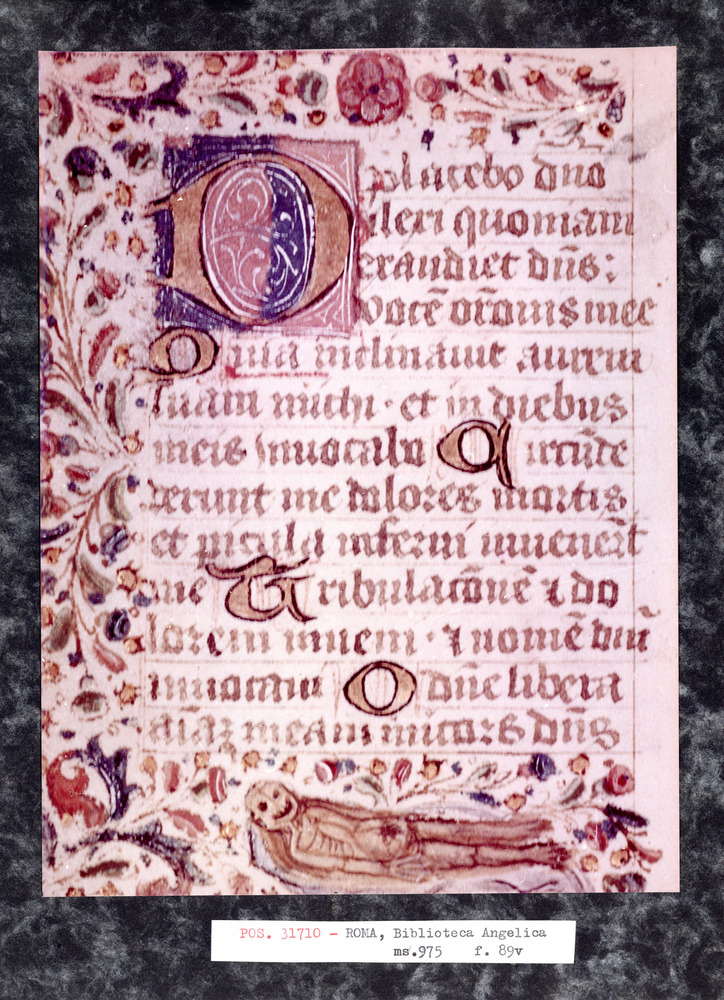 D placebo dno
ilexi quoniam
exaudiet dñs:
vocẽ orõnis mee
Q uia inclinauit aurem
suam michi · et in diebus
meis inuocabo C ircũde
derunt me dolores mortis
et picula inferni inuenerũt
me T ribulacõnẽ ⁊ do
lorem inueni · ⁊ nomẽ dni
inuocaui O dñe libera
aĩaꝫ meam misericors dñs
POS. 31710 - ROMA, Biblioteca Angelica
ms.975 f. 89v